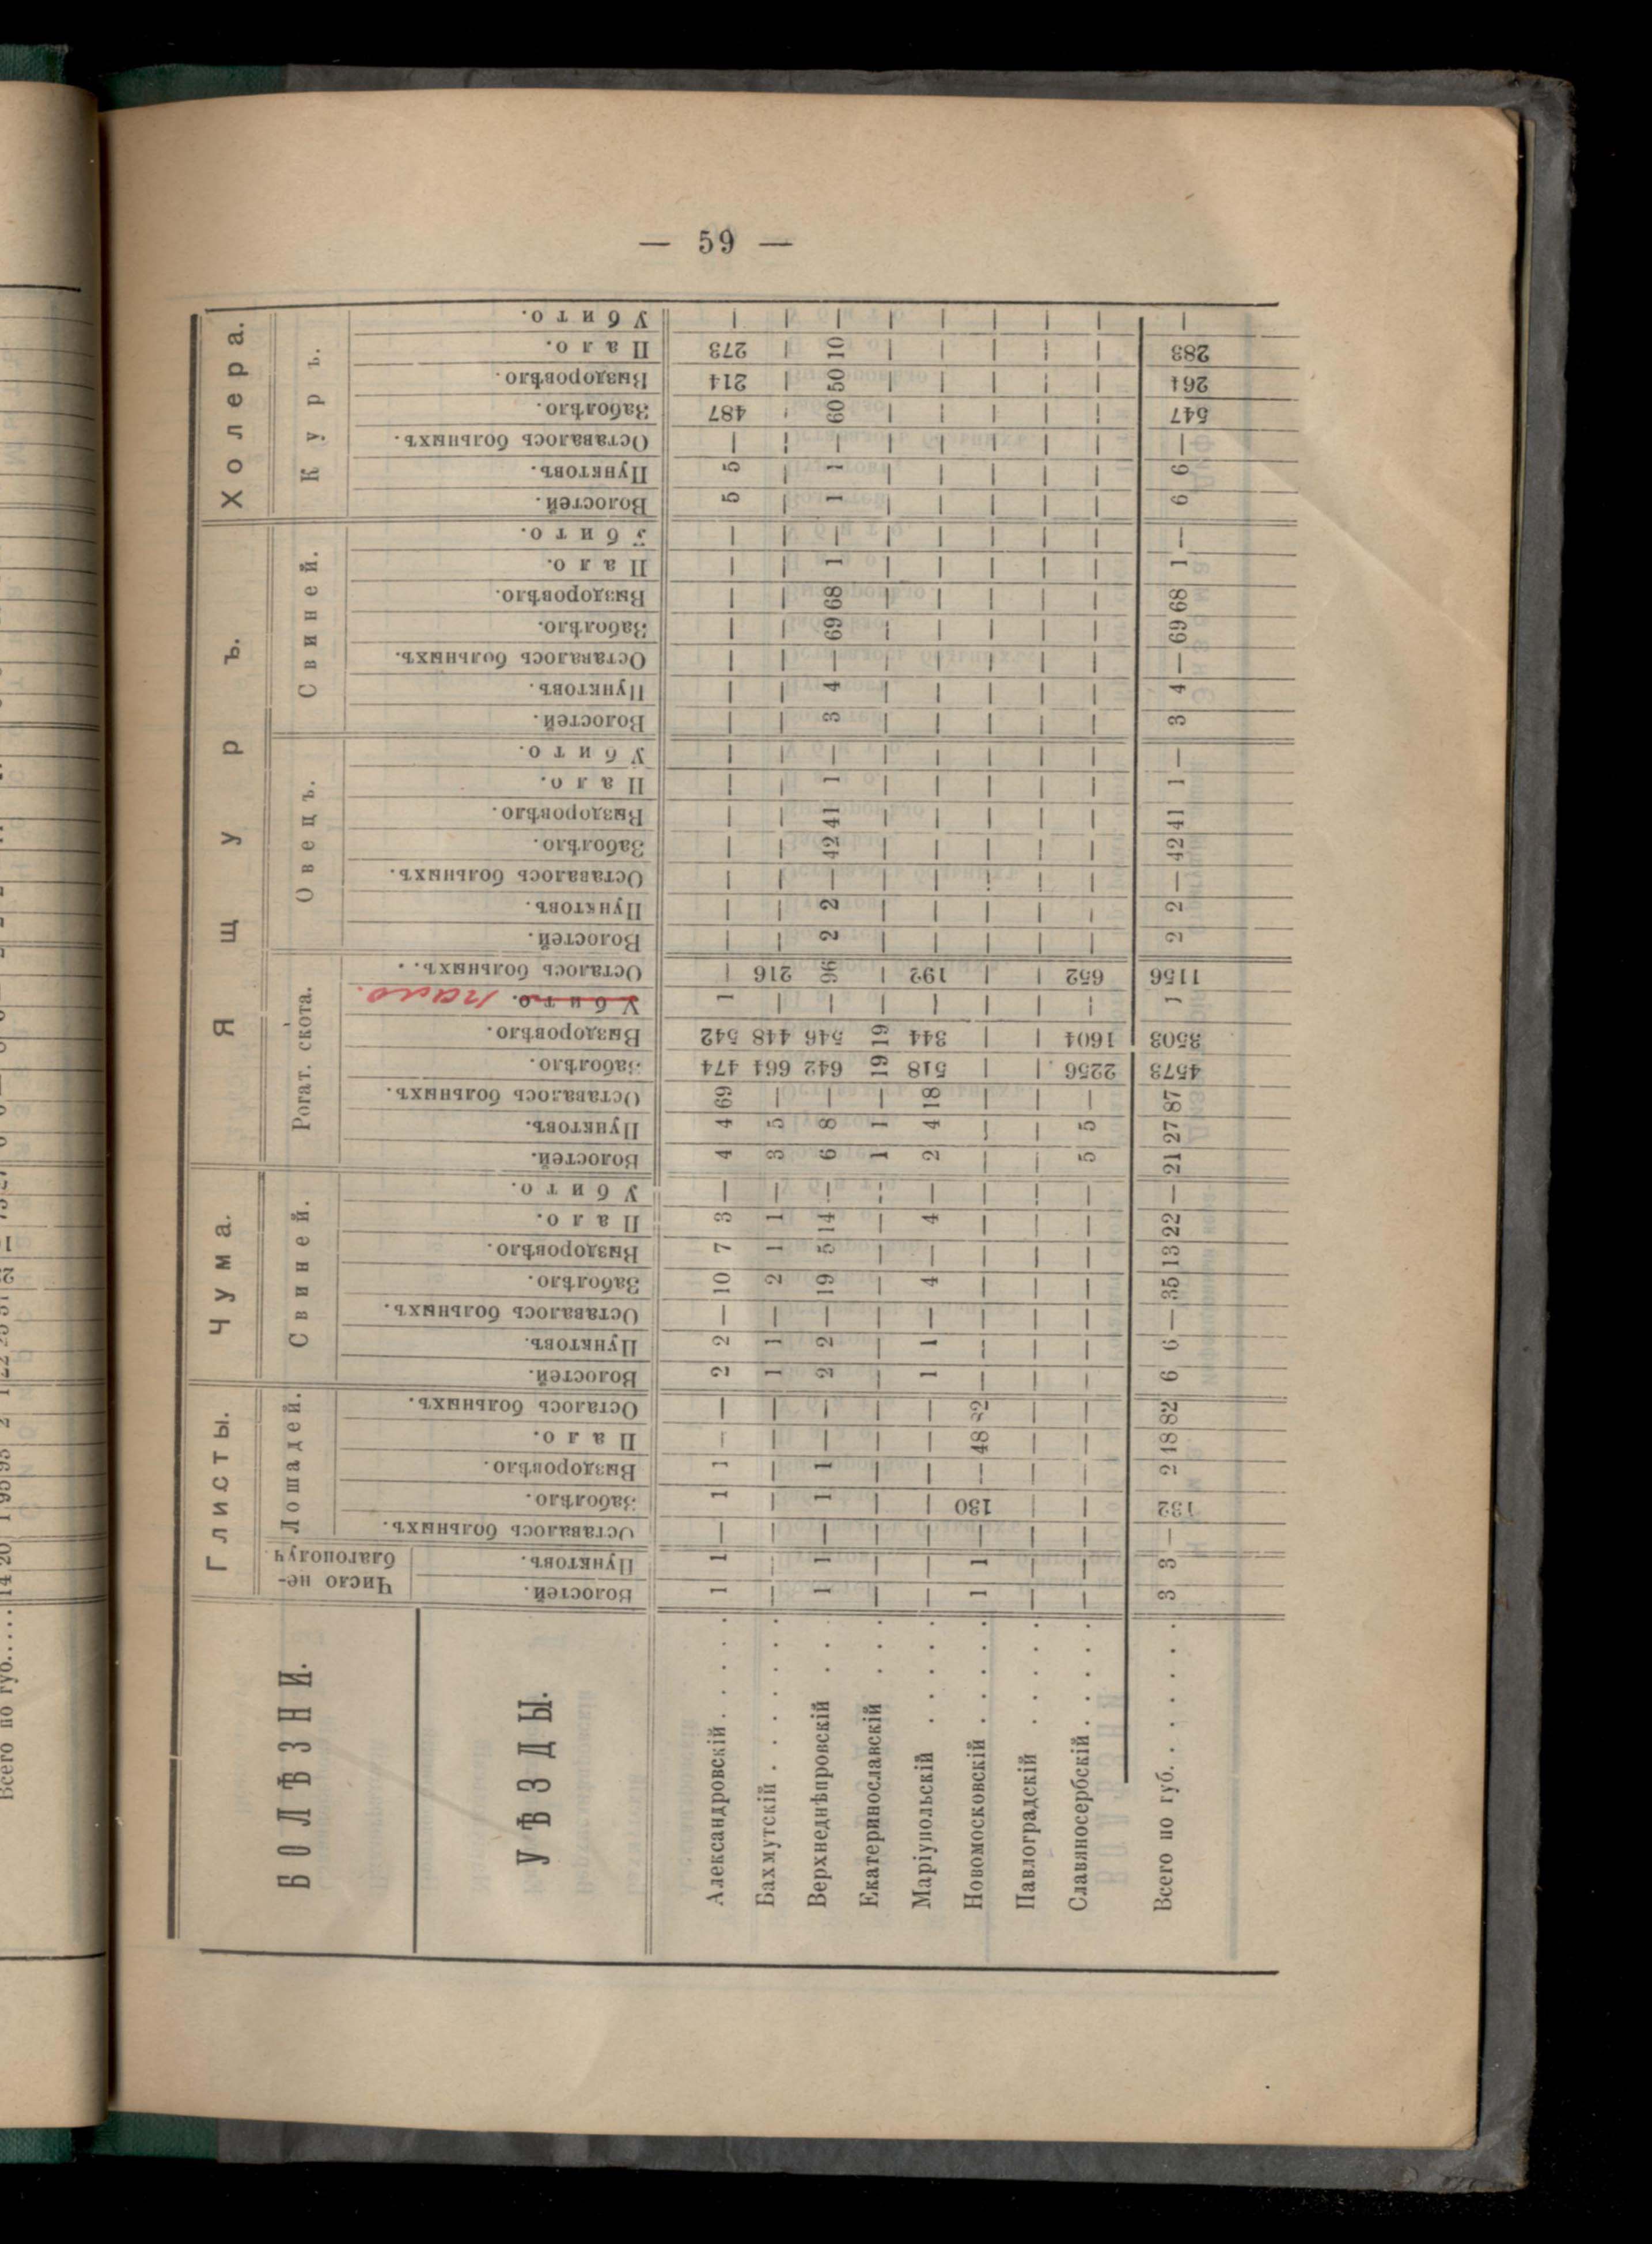 — 59 —
БОЛѢЗНИ.
УѢЗДЫ.
Глисты. Чума. ЯЩУРЪ. Холера.
Число не- благополуч Лошадей. Свиней. Рогат. скота. Овецъ. Свиней. Куръ.
Волостей. Пунктовъ. Оставалось больныхъ. Заболѣло. Выздоровѣло. Пало. Осталось больныхъ.
Волостей. Пунктовъ. Оставалось больныхъ. Заболѣло. Выздоровѣло. Пало. Убито.
Волостей. Пунктовъ. Оставалось больныхъ. Заболѣло. Выздоровѣло. Убито. пало. Осталось больныхъ.
Волостей. Пунктовъ. Оставалось больныхъ. Заболѣло. Выздоровѣло. Пало. Убито.
Волостей. Пунктовъ. Оставалось больныхъ. Заболѣло. Выздоровѣло. Пало. Убито.
Волостей. Пунктовъ. Оставалось больныхъ. Заболѣло. Выздоровѣло. Пало. Убито.
Александровскій . . . . . 1 1 — 1 1 — — 2 2 — 10 7 3 — 4 4 69 474 542 1 — — — — — — — — — — — — — — — 5 5 — 487 214 273 —
Бахмутскій . . . . . . — — — — — — — 1 1 — 2 1 1 — 3 5 — 664 448 — 216 — — — — — — — — — — — — — — — — — — — — —
Верхнеднѣпровскій . . . 1 1 — 1 1 — — 2 2 — 19 5 14 — 6 8 — 642 546 — 96 2 2 — 42 41 1 — 3 4 — 69 68 1 — 1 1 — 60 50 10 —
Екатеринославскій . . . — — — — — — — — — — — — — — 1 1 — 19 19 — — — — — — — — — — — — — — — — — — — — — — —
Маріупольскій . . . . . — — — — — — — 1 1 — 4 — 4 — 2 4 18 518 344 — 192 — — — — — — — — — — — — — — — — — — — — —
Новомосковскій . . . . 1 1 — 130 — 48 82 — — — — — — — — — — — — — — — — — — — — — — — — — — — — — — — — — — —
Павлоградскій . . . . — — — — — — — — — — — — — — — — — — — — — — — — — — — — — — — — — — — — — — — — — —
Славяносербскій . . . . — — — — — — — — — — — — — — 5 5 — 2256 1604 — 652 — — — — — — — — — — — — — — — — — — — — —
Всего по губ. . . . . . 3 3 — 132 2 48 82 6 6 — 35 13 22 — 21 27 87 4573 3503 1 1156 2 2 — 42 41 1 — 3 4 — 69 68 1 — 6 6 — 547 264 283 —
Всего по губ.